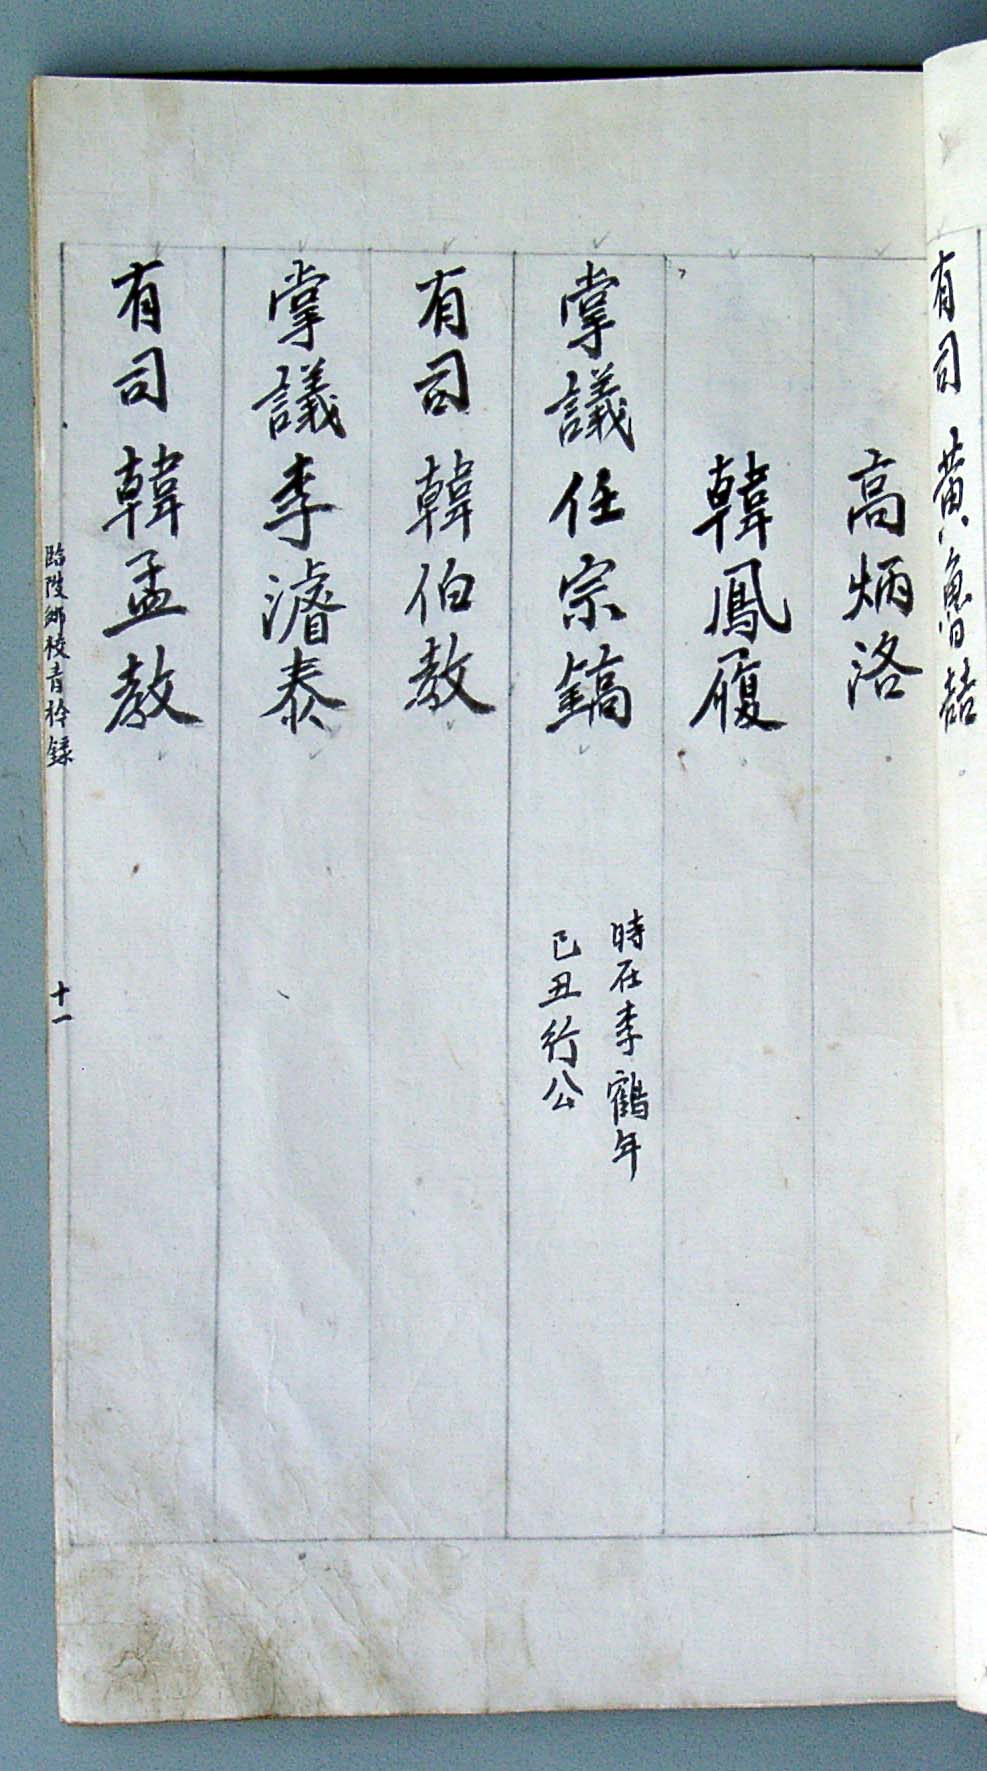 有司 黃魯喆
高炳洛
韓鳳履
掌議任宗鎬
時在李鶴年
己丑行公
有司韓伯敎
掌議李濬泰
有司韓孟敎
臨陂鄕校青衿錄
十一